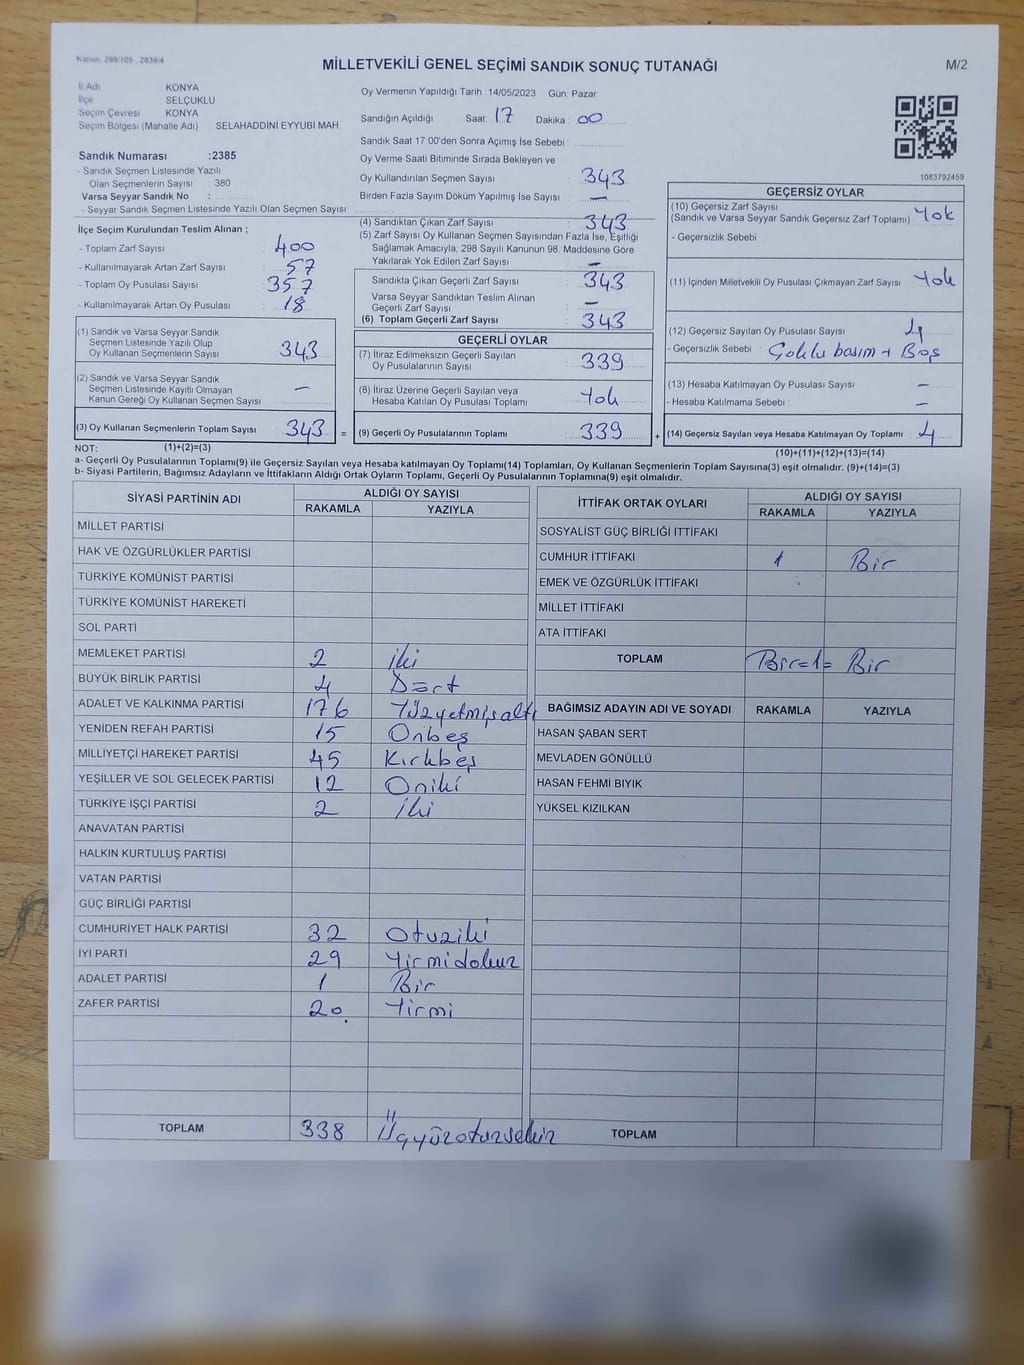 Kanun, 298/105 , 2839/4
MİLLETVEKİLİ GENEL SEÇİMİ SANDIK SONUÇ TUTANAĞI
M/2
İl Adı KONYA
İlçe SELÇUKLU
Seçim Çevresi KONYA
Seçim Bölgesi (Mahalle Adı) SELAHADDİNİ EYYUBİ MAH.
Sandık Numarası :2385
- Sandık Seçmen Listesinde Yazılı
Olan Seçmenlerin Sayısı : 380
Varsa Seyyar Sandık No :
- Seyyar Sandık Seçmen Listesinde Yazılı Olan Seçmen Sayısı
İlçe Seçim Kurulundan Teslim Alınan ;
- Toplam Zarf Sayısı : 400
- Kullanılmayarak Artan Zarf Sayısı : 57
- Toplam Oy Pusulası Sayısı : 357
- Kullanılmayarak Artan Oy Pusulası : 18
(1) Sandık ve Varsa Seyyar Sandık
Seçmen Listesinde Yazılı Olup
Oy Kullanan Seçmenlerin Sayısı : 343
(2) Sandık ve Varsa Seyyar Sandık
Seçmen Listesinde Kayıtlı Olmayan
Kanun Gereği Oy Kullanan Seçmen Sayısı : –
(3) Oy Kullanan Seçmenlerin Toplam Sayısı : 343 =
Oy Vermenin Yapıldığı Tarih :14/05/2023 Gün: Pazar
Sandığın Açıldığı Saat: 17 Dakika : 00
Sandık Saat 17:00'den Sonra Açımış İse Sebebi :
Oy Verme Saati Bitiminde Sırada Bekleyen ve
Oy Kullandırılan Seçmen Sayısı : 343
Birden Fazla Sayım Döküm Yapılmış İse Sayısı : –
(4) Sandıktan Çıkan Zarf Sayısı : 343
(5) Zarf Sayısı Oy Kullanan Seçmen Sayısından Fazla İse, Eşitliği
Sağlamak Amacıyla; 298 Sayılı Kanunun 98. Maddesine Göre
Yakılarak Yok Edilen Zarf Sayısı : –
Sandıkta Çıkan Geçerli Zarf Sayısı : 343
Varsa Seyyar Sandıktan Teslim Alınan
Geçerli Zarf Sayısı : –
(6) Toplam Geçerli Zarf Sayısı : 343
GEÇERLİ OYLAR
(7) İtiraz Edilmeksizin Geçerli Sayılan
Oy Pusulalarının Sayısı : 339
(8) İtiraz Üzerine Geçerli Sayılan veya
Hesaba Katılan Oy Pusulası Toplamı : Yok
(9) Geçerli Oy Pusulalarının Toplamı : 339 +
1083792459
GEÇERSİZ OYLAR
(10) Geçersiz Zarf Sayısı
(Sandık ve Varsa Seyyar Sandık Geçersiz Zarf Toplamı) : Yok
- Geçersizlik Sebebi :
(11) İçinden Milletvekili Oy Pusulası Çıkmayan Zarf Sayısı : Yok
(12) Geçersiz Sayılan Oy Pusulası Sayısı : 4
- Geçersizlik Sebebi : Çoklu basım + Boş
(13) Hesaba Katılmayan Oy Pusulası Sayısı : –
- Hesaba Katılmama Sebebi : –
(14) Geçersiz Sayılan veya Hesaba Katılmayan Oy Toplamı : 4
NOT: (1)+(2)=(3)
(10)+(11)+(12)+(13)=(14)
a- Geçerli Oy Pusulalarının Toplamı(9) ile Geçersiz Sayılan veya Hesaba katılmayan Oy Toplamı(14) Toplamları, Oy Kullanan Seçmenlerin Toplam Sayısına(3) eşit olmalıdır. (9)+(14)=(3)
b- Siyasi Partilerin, Bağımsız Adayların ve İttifakların Aldığı Ortak Oyların Toplamı, Geçerli Oy Pusulalarının Toplamına(9) eşit olmalıdır.
SİYASİ PARTİNİN ADI ALDIĞI OY SAYISI
RAKAMLA YAZIYLA
MİLLET PARTİSİ
HAK VE ÖZGÜRLÜKLER PARTİSİ
TÜRKİYE KOMÜNİST PARTİSİ
TÜRKİYE KOMÜNİST HAREKETİ
SOL PARTİ
MEMLEKET PARTİSİ 2 iki
BÜYÜK BİRLİK PARTİSİ 4 Dört
ADALET VE KALKINMA PARTİSİ 176 Yüzyetmişaltı
YENİDEN REFAH PARTİSİ 15 Onbeş
MİLLİYETÇİ HAREKET PARTİSİ 45 Kırkbeş
YEŞİLLER VE SOL GELECEK PARTİSİ 12 Oniki
TÜRKİYE İŞÇİ PARTİSİ 2 iki
ANAVATAN PARTİSİ
HALKIN KURTULUŞ PARTİSİ
VATAN PARTİSİ
GÜÇ BİRLİĞİ PARTİSİ
CUMHURİYET HALK PARTİSİ 32 Otuziki
İYİ PARTİ 29 Yirmidokuz
ADALET PARTİSİ 1 Bir
ZAFER PARTİSİ 20 Yirmi
TOPLAM 338 Üçyüzotuzsekiz
İTTİFAK ORTAK OYLARI ALDIĞI OY SAYISI
RAKAMLA YAZIYLA
SOSYALİST GÜÇ BİRLİĞİ İTTİFAKI
CUMHUR İTTİFAKI 1 Bir
EMEK VE ÖZGÜRLÜK İTTİFAKI
MİLLET İTTİFAKI
ATA İTTİFAKI
TOPLAM Bir=1= Bir
BAĞIMSIZ ADAYIN ADI VE SOYADI RAKAMLA YAZIYLA
HASAN ŞABAN SERT
MEVLADEN GÖNÜLLÜ
HASAN FEHMI BIYIK
YÜKSEL KIZILKAN
TOPLAM